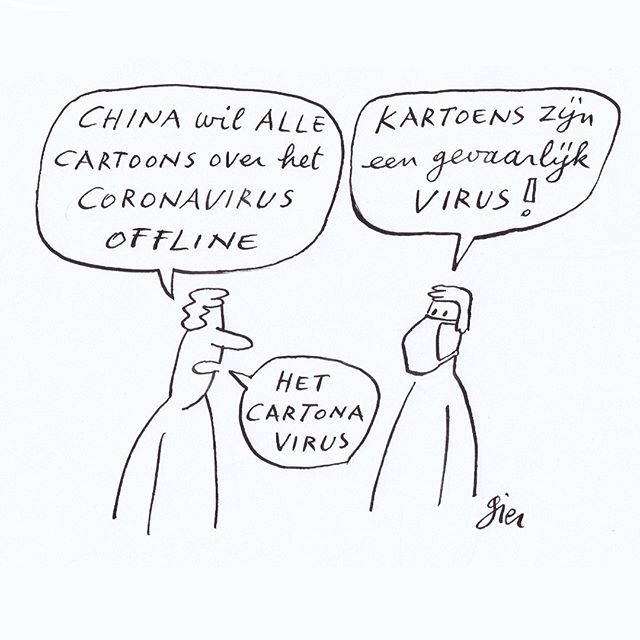 CHINA wil ALLE
CARTOONS over het
CORONAVIRUS
OFFLINE
KARTOENS zijn
een gevaarlijk
VIRUS!
HET
CARTONA
VIRUS
Gier